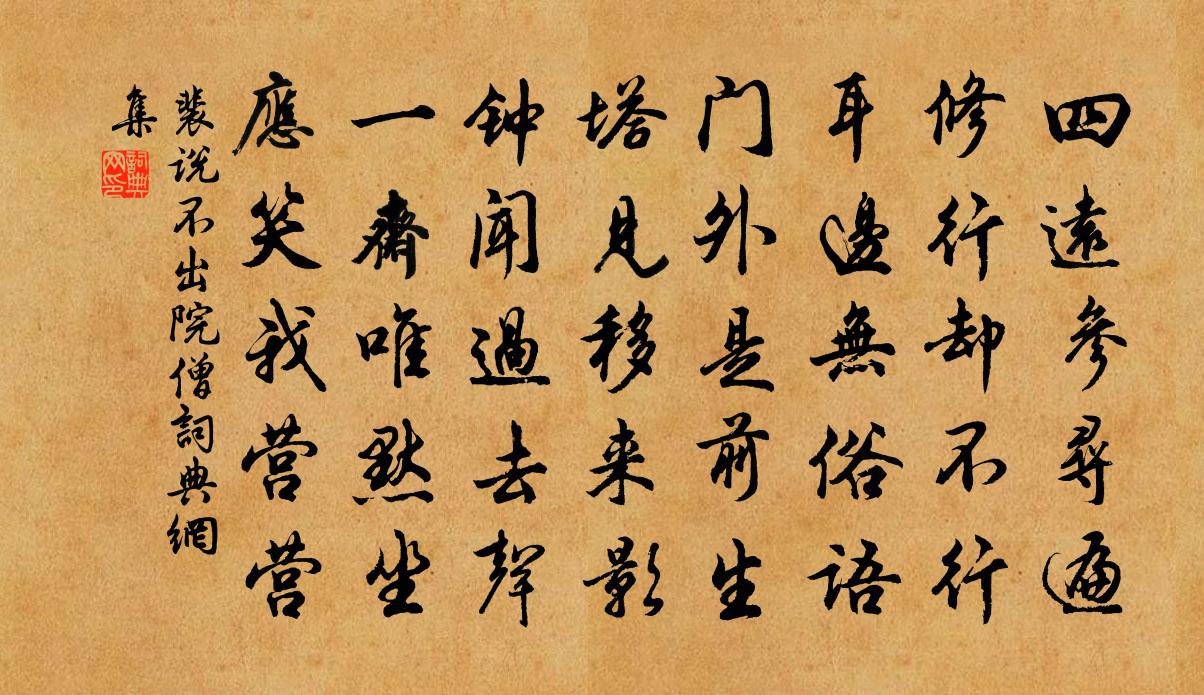 四遠參尋遍
修行却不行
耳邊無俗語
门外是前生
塔見移来影
钟闻過去聲
一齋唯黙坐
應笑我营营
裴说不出院僧詞典網
集
詞典
网印